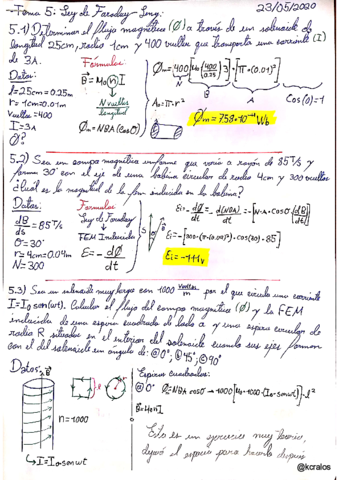 Tema 5: Ley de Faraday-Lenz:
23/05/2020
5.1) Determinar el flujo magnético (Ø) a través de un solenoide de
longitud 25cm, radio 1cm y 400 vueltas que transporta una corriente (I)
de 3A.
Datos:
l=25cm=0.25m
r=1cm=0.01m
Vueltas=400
I=3A
Ø?
Fórmulas:
B=M₀(n)I
N vueltas
longitud
Øm=NBA(cosΘ)
Øm=400[M₀(400/0.25)3]·[π·(0.01)²]
N
B
A
A₀=π·r²
Cos(0)=1
Øm=758·10⁻⁴ Wb
5.2) Sea un campo magnético uniforme que varía a razón de 85T/s y
forma 30º con el eje de una bobina circular de radio 4cm y 300 vueltas
¿Cuál es la magnitud de la fem inducida en la bobina?
Datos:
dB/ds=85T/s
Θ=30º
r=4cm=0.04m
N=300
Fórmulas
Ley de Faraday
FEM Inducida
E=-dØ/dt
Ei=-dØ/dt=-d(NBA)/dt=-[N·A·cosΘ(dB/dt)]
Ei=-[300·(π·(0.04)²)·cos(30)·85]
Ei=-111v
5.3) Sea un solenoide muy largo con 1000 vueltas/m por el que circula una corriente
I=I₀sen(wt). Calcular el flujo del campo magnético (Ø) y la FEM
inducida de una espira cuadrada de lado a y una espira circular de
radio R situados en el interior del solenoide cuando sus ejes forman
con el del solenoide un ángulo de: ⓐ0º, ⓑ45º, ⓒ90º
Datos:
B
n=1000
I=I₀senwt
Espiras cuadradas:
ⓐ0º
Øi=NBA cosΘ → 1000[M₀·1000·(I₀·senwt)]·l²
B=M₀nI
Esto es un ejercicio muy teórico,
dejaré el espacio para hacerlo después
@kcralos